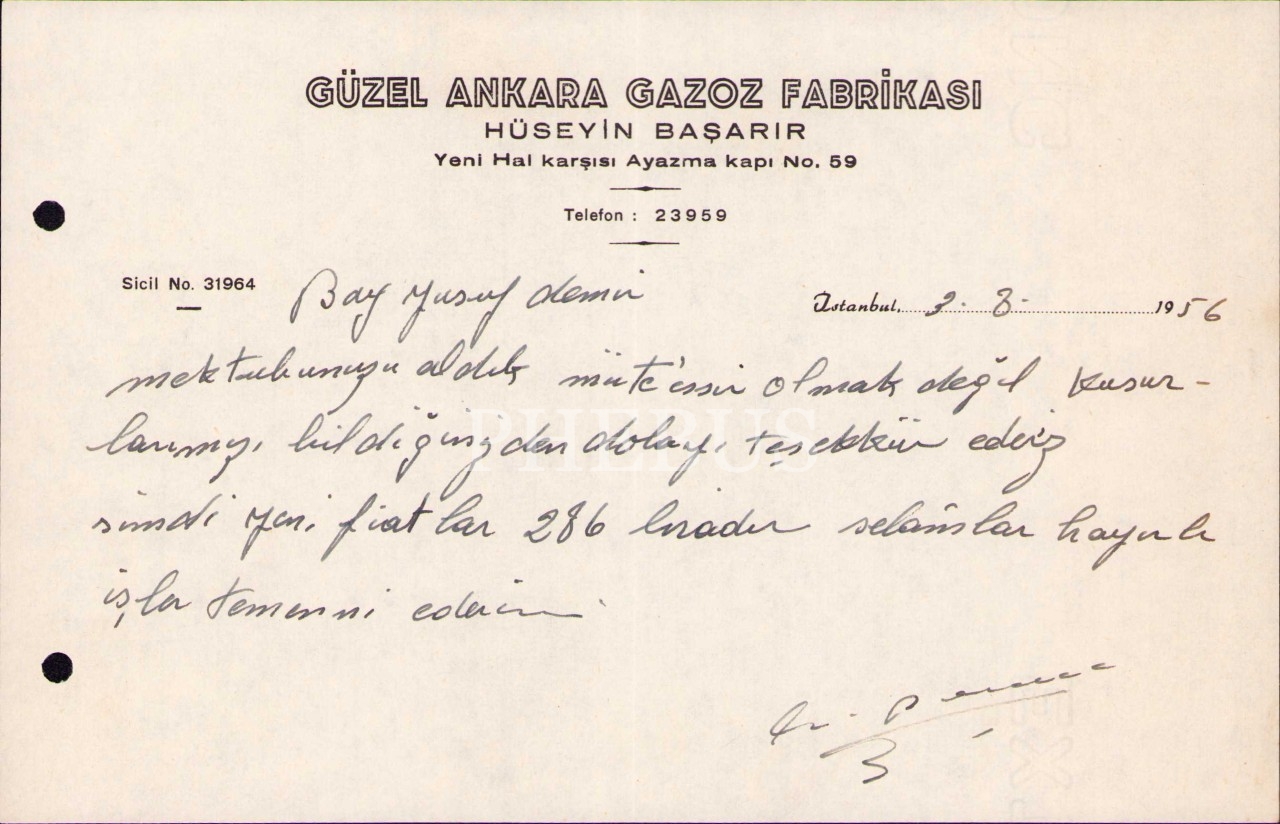 GÜZEL ANKARA GAZOZ FABRİKASI
HÜSEYİN BAŞARIR
Yeni Hal karşısı Ayazma kapı No. 59
Telefon : 23959
Sicil No. 31964
Bay Yusuf demir
İstanbul, 3. 8. 1956
mektubunuzu aldık müte'essir olmak değil kusur-
larımızı bildiğinizden dolayı teşekkür ederiz
şimdi yeni fiatlar 286 liradır selâmlar hayırlı
işler temenni ederim
PHEBUS